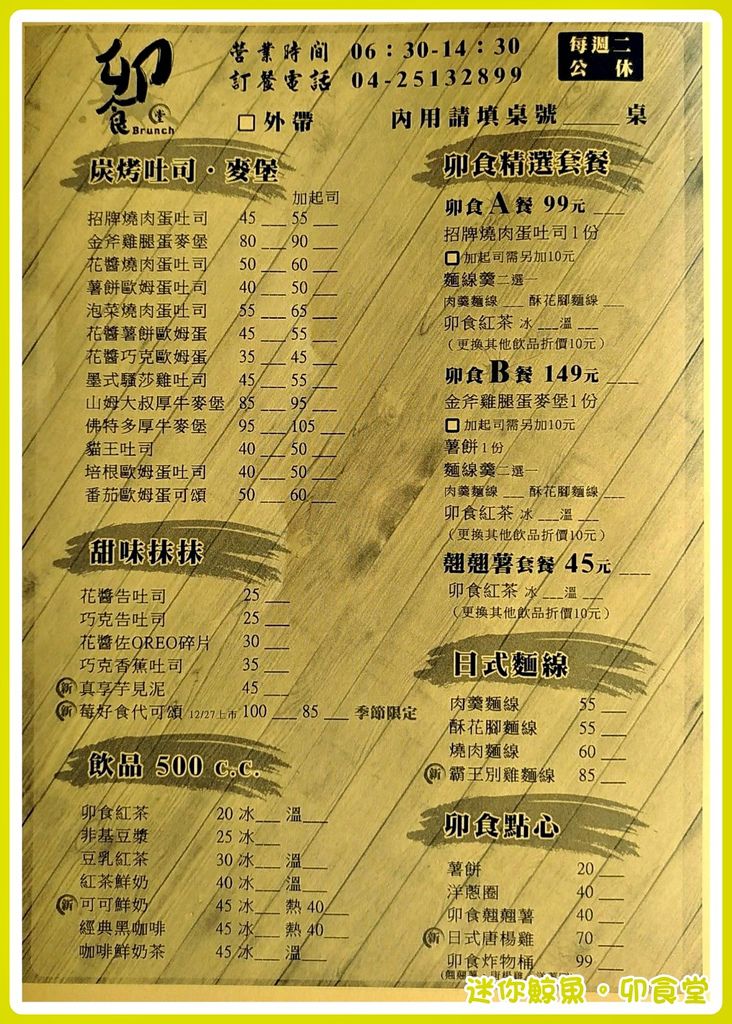 卯食堂
Brunch
營業時間 06:30-14:30
訂餐電話 04-25132899
每週二
公休
□外帶
內用請填桌號____桌
炭烤吐司·麥堡
加起司
招牌燒肉蛋吐司 45 __ 55 __
金斧雞腿蛋麥堡 80 __ 90 __
花醬燒肉蛋吐司 50 __ 60 __
薯餅歐姆蛋吐司 40 __ 50 __
泡菜燒肉蛋吐司 55 __ 65 __
花醬薯餅歐姆蛋 45 __ 55 __
花醬巧克歐姆蛋 35 __ 45 __
墨式騷莎雞吐司 45 __ 55 __
山姆大叔厚牛麥堡 85 __ 95 __
佛特多厚牛麥堡 95 __ 105 __
貓王吐司 40 __ 50 __
培根歐姆蛋吐司 40 __ 50 __
番茄歐姆蛋可頌 50 __ 60 __
甜味抹抹
花醬告吐司 25 __
巧克告吐司 25 __
花醬佐OREO碎片 30 __
巧克香蕉吐司 35 __
新 真享芋見泥 45 __
新 莓好食代可頌 12/27上市 100 __ 85 __ 季節限定
飲品 500 c.c.
卯食紅茶 20 冰__ 溫__
非基豆漿 25 冰__
豆乳紅茶 30 冰__ 溫__
紅茶鮮奶 40 冰__ 溫__
新 可可鮮奶 45 冰__ 熱 40 __
經典黑咖啡 45 冰__ 熱 40 __
咖啡鮮奶茶 45 冰__ 溫__
卯食精選套餐
卯食A餐 99元 ___
招牌燒肉蛋吐司1份
□加起司需另加10元
麵線羹二選一
肉羹麵線 ___ 酥花腳麵線 ___
卯食紅茶 冰 ___溫 ___
(更換其他飲品折價10元)
卯食B餐 149元 ___
金斧雞腿蛋麥堡1份
□加起司需另加10元
薯餅1份
麵線羹二選一
肉羹麵線 ___ 酥花腳麵線 ___
卯食紅茶 冰 ___溫 ___
(更換其他飲品折價10元)
翹翹薯套餐 45元 ___
卯食紅茶 冰 ___溫 ___
(更換其他飲品折價10元)
日式麵線
肉羹麵線 55 __
酥花腳麵線 55 __
燒肉麵線 60 __
新 霸王別雞麵線 85 __
卯食點心
薯餅 20 __
洋蔥圈 40 __
卯食翹翹薯 40 __
新 日式唐楊雞 70 __
卯食炸物桶 99 __
迷你鯨魚。卯食堂